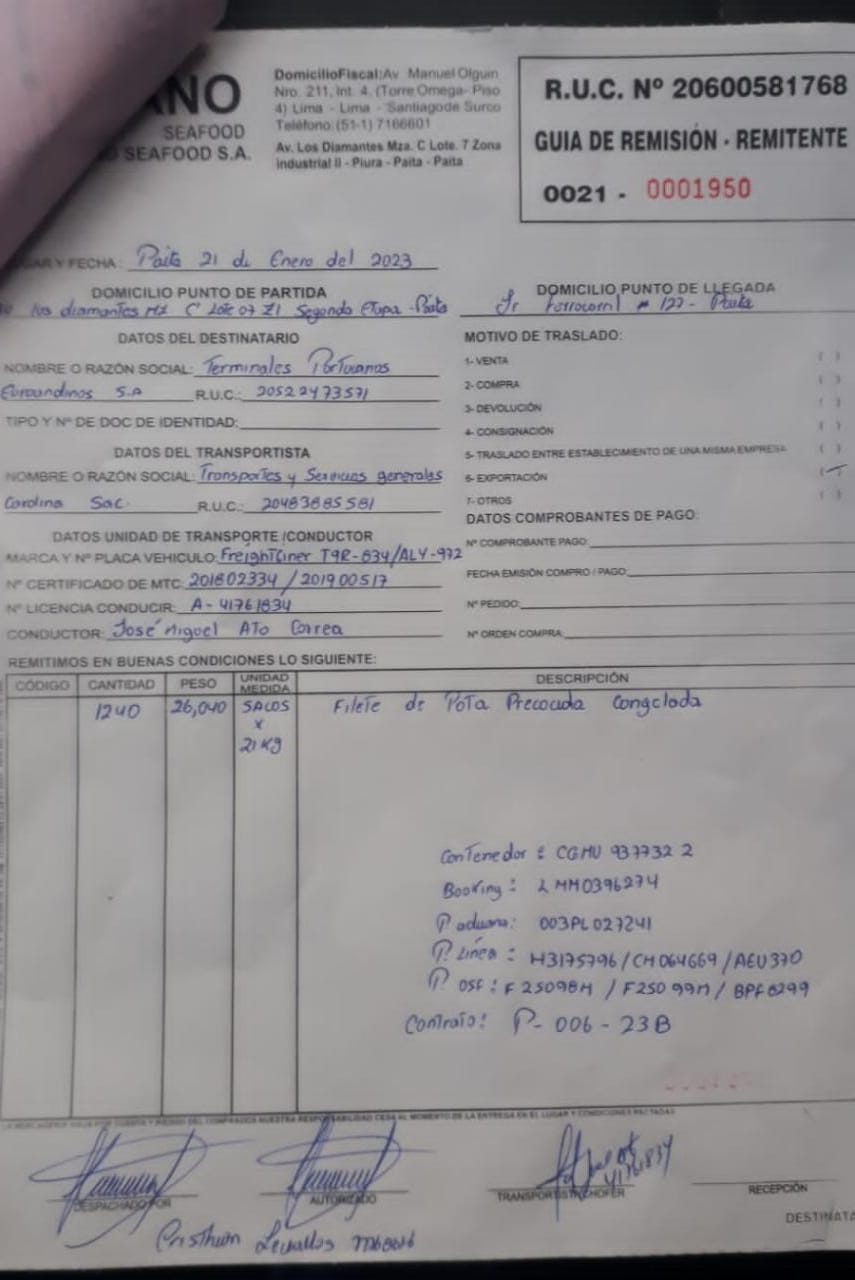 ANO
SEAFOOD
SEAFOOD S.A.
DomicilioFiscal:Av. Manuel Olguin
Nro. 211, Int. 4. (Torre Omega- Piso
4) Lima - Lima - Santiagode Surco
Teléfono:(51-1) 7166601
Av. Los Diamantes Mza. C Lote. 7 Zona
industrial II - Piura - Paita - Paita
R.U.C. Nº 20600581768
GUIA DE REMISIÓN - REMITENTE
0021 - 0001950
GAR Y FECHA: Paita 21 de Enero del 2023
DOMICILIO PUNTO DE PARTIDA
los diamantes Mz C Lote 07 ZI Segunda Etapa - Paita
DOMICILIO PUNTO DE LLEGADA
Jr Ferrocarril # 127 - Paita
DATOS DEL DESTINATARIO
NOMBRE O RAZÓN SOCIAL: Terminales Portuarios
Euroandinos S.A R.U.C.: 20522473571
TIPO Y Nº DE DOC DE IDENTIDAD:
DATOS DEL TRANSPORTISTA
NOMBRE O RAZÓN SOCIAL: Transportes y Servicios generales
Carolina Sac. R.U.C.: 20483885581
DATOS UNIDAD DE TRANSPORTE /CONDUCTOR
MARCA Y Nº PLACA VEHICULO: Freightliner T9R-834/ALY-972
Nº CERTIFICADO DE MTC: 201802334 / 201900517
Nº LICENCIA CONDUCIR: A - 41761834
CONDUCTOR: José Miguel Ato Correa
MOTIVO DE TRASLADO:
1- VENTA ( )
2- COMPRA ( )
3- DEVOLUCIÓN ( )
4- CONSIGNACIÓN ( )
5- TRASLADO ENTRE ESTABLECIMIENTO DE UNA MISMA EMPRESA ( )
6- EXPORTACIÓN
7- OTROS ( )
DATOS COMPROBANTES DE PAGO:
Nº COMPROBANTE PAGO:
FECHA EMISIÓN COMPRO / PAGO:
Nº PEDIDO:
Nº ORDEN COMPRA:
REMITIMOS EN BUENAS CONDICIONES LO SIGUIENTE:
CÓDIGO CANTIDAD PESO UNIDAD MEDIDA DESCRIPCIÓN
1240 26,040 SACOS Filete de Pota Precocida Congelada
x
21 Kg
Contenedor : CGMU 937732 2
Booking : LMM0396274
P aduana: 003PL027241
P. Linea : H3175796/CM064669/AEU370
P OSF : F25098M / F25099M / BPF0299
Contrato: P- 006 - 23B
DESPACHADO POR
AUTORIZADO
41761834
TRANSPORTISTA/CHOFER
RECEPCIÓN
DESTINATA